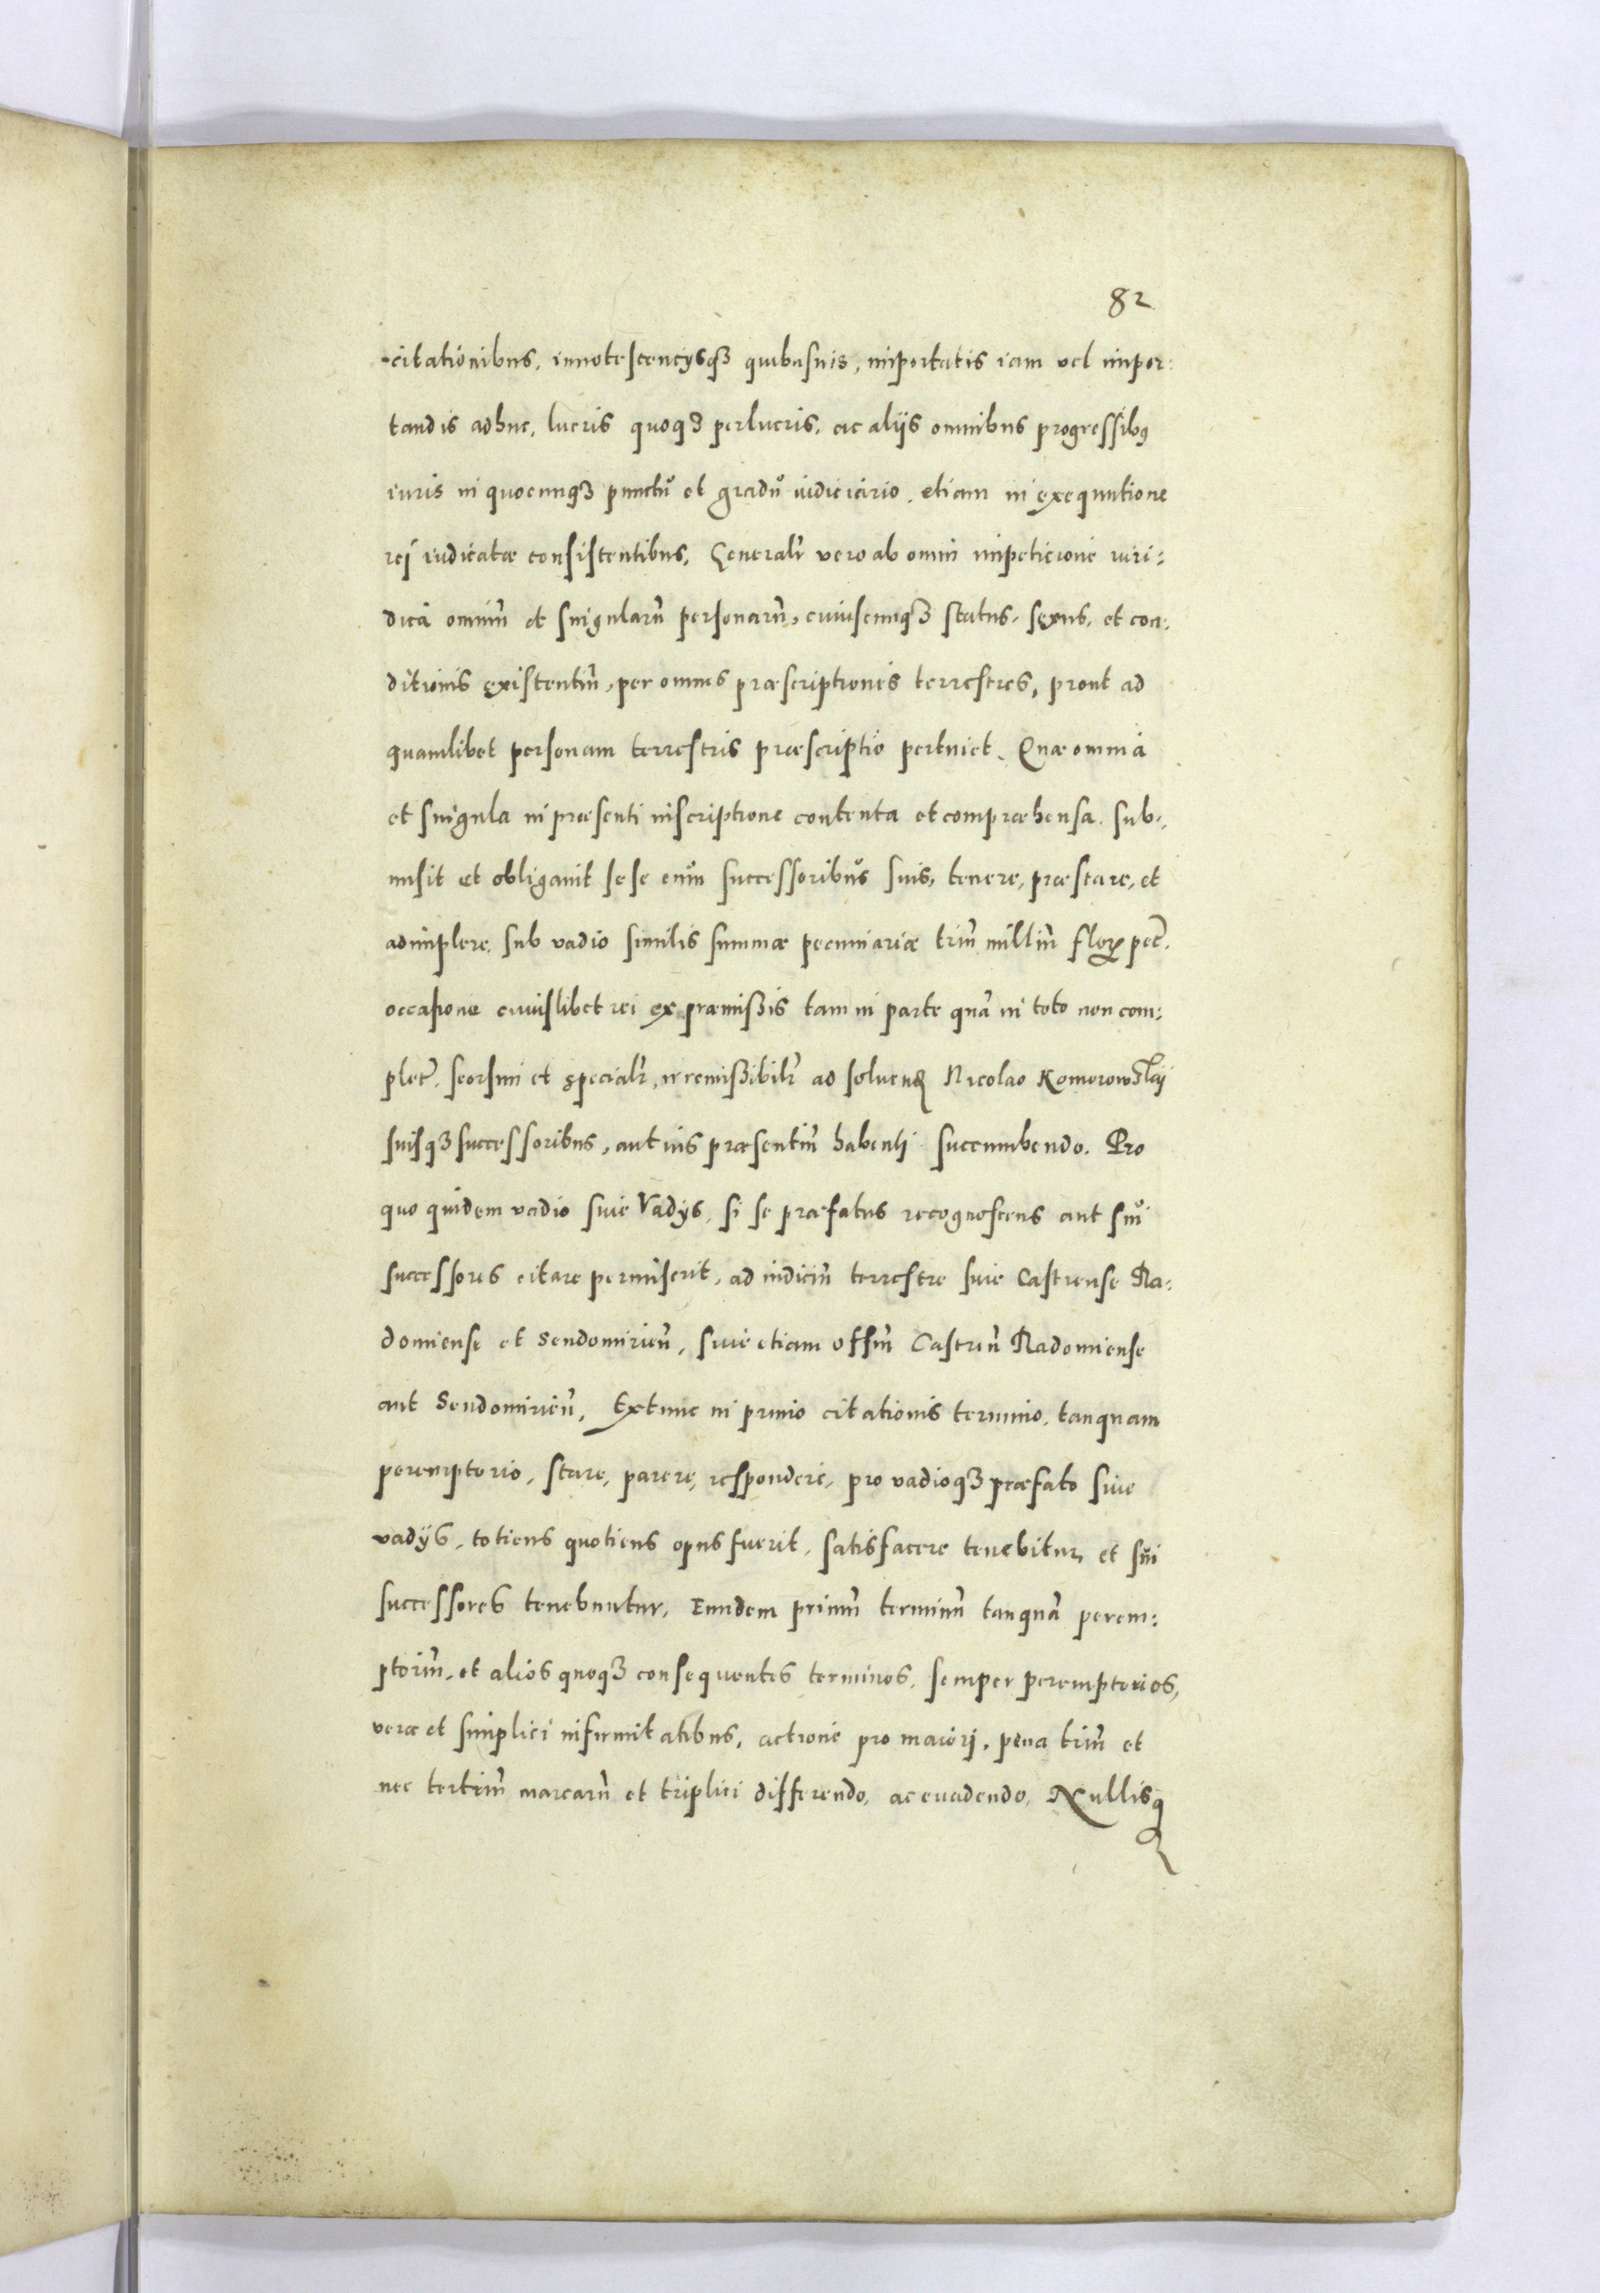 82
-citationibus, innotescencysqȝ quibusuis, importatis iam vel impor:
tandis adhuc, lucris quoqȝ perlucris, ac aliis omnibus progressibꝰ
iuris in quocunqȝ punctu et gradu iudiciario, etiam in exequutione
rei iudicatæ consistentibus, Generalr vero ab omni impeticione iuri:
dica omniũ et singularũ personarũ, cuiuscunqȝ status, sexus, et con:
ditionis existentiũ, per omnes præscriptiones terrestres, prout ad
quamlibet personam terrestris præscriptio pertinet. Quæ omnia
et singula in præsenti inscriptione contenta et compræhensa, sub:
misit et obligauit sese cum successoribus suis, tenere, præstare, et
adimplere, sub vadio similis summæ pecuniariæ triũ milliũ floꝝ pec.
occasione cuiuslibet rei ex præmißis tam in parte quã in toto non com:
plet. seorsim et specialr, irremißibilr ad soluenꝝ Nicolao Komorowskij
suisqȝ successoribus, aut ius præsentiũ habenti succumbendo. Pro
quo quidem vadio siue Vadys, si se præfatus recognoscens aut sui
successores citare permiserit, ad iudiciũ terrestre siue Castrense Ra:
domiense et Sendomirieñ, siue etiam offiũ Castreñ Radomiense
aut Sendomirieñ, Extunc in primo citationis termino, tanquam
peremptorio, stare, parere, respondere, pro vadioqȝ præfato siue
vadijs, totiens quotiens opus fuerit, satisfacere tenebitur, et sui
successores tenebuntur, Eundem primũ terminũ tanquã perem:
ptoriũ, et alios quoqȝ consequentes terminos, semper peremptorios,
vera et simplici infirmitatibus, actione pro maiori, pena triũ et
nec tertiũ marcarũ et triplici differendo, ac euadendo, Nullisqȝ